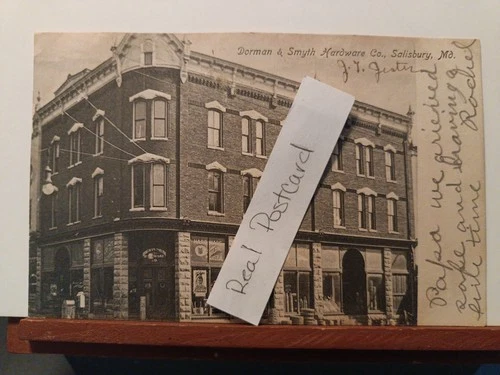 Dorman & Smyth Hardware Co., Salisbury, Md.
J. T. Jester
Real Postcard
Papa we arrived
safe and having a
fine time Rachel